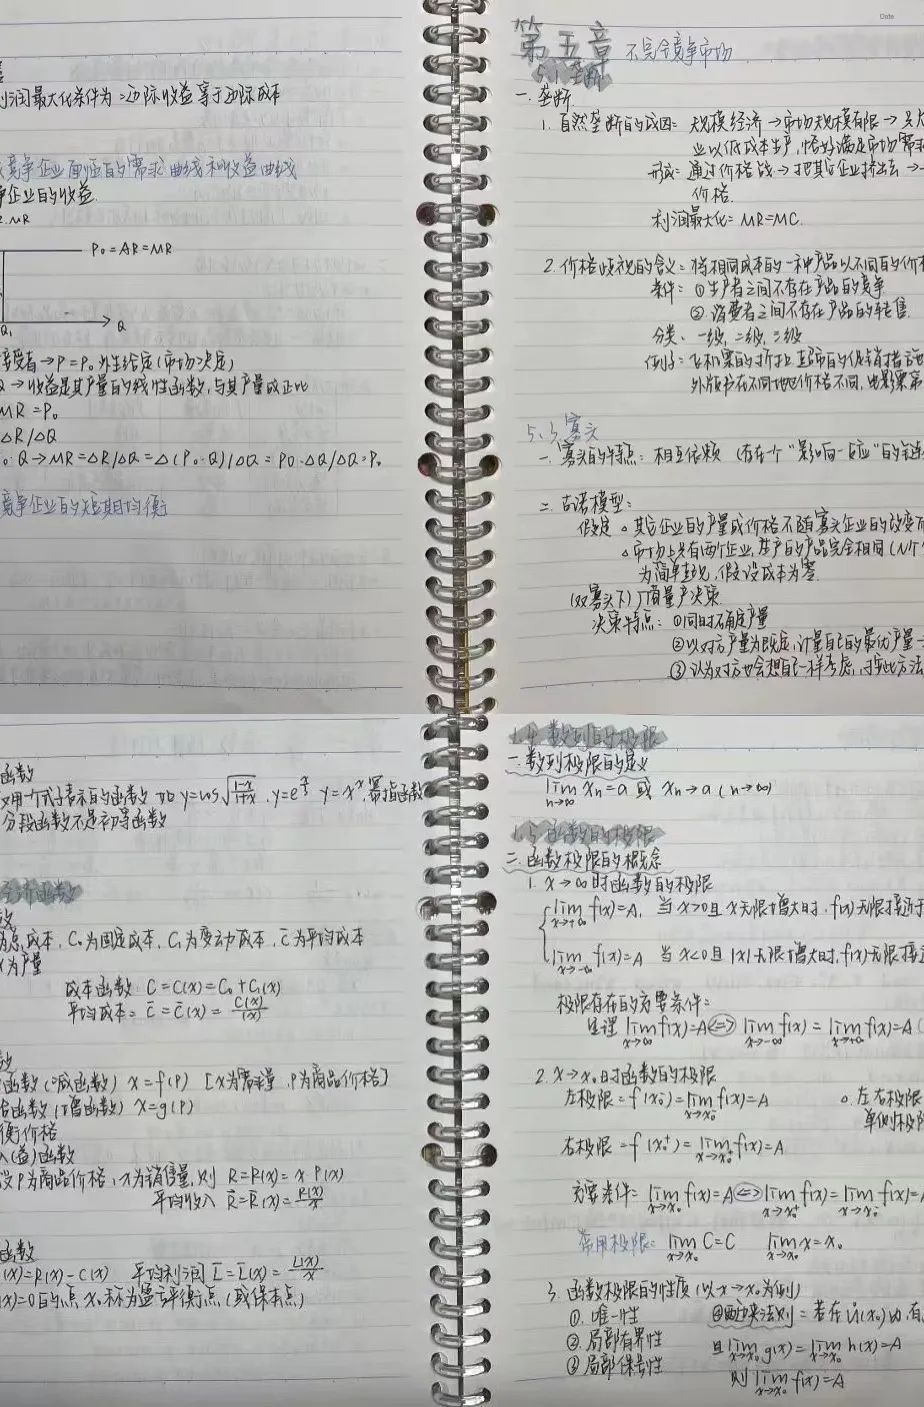 利润最大化条件为:边际收益等于边际成本
竞争企业面临的需求曲线和收益曲线
企业的收益
P₀=AR=MR
Q₁
Q
接受者→P=P₀外生给定(市场决定)
Q→收益是其产量的线性函数,与其产量成正比
MR=P₀
ΔR/ΔQ
P₀·Q→MR=ΔR/ΔQ=Δ(P₀·Q)/ΔQ=P₀·ΔQ/ΔQ=P₀
竞争企业的短期均衡
Date
第五章 不完全竞争市场
5.1 垄断
一.垄断
1.自然垄断的成因:规模经济→市场规模有限→
业以低成本生产,恰好满足市场需求
形成:通过价格战→把其它企业挤出去→
价格.
利润最大化:MR=MC.
2.价格歧视的含义:将相同成本的一种产品以不同的价格
条件:①生产者之间不存在产品的竞争
②消费者之间不存在产品的转售.
分类:一级,二级,三级
例子:飞机票的折扣,超市的促销措施
外版书在不同地区价格不同,电影票
5.3 寡头
一.寡头的特点:相互依赖(存在一个“影响—反应”的链
二.古诺模型:
假定 。其它企业的产量或价格不随寡头企业的改变而
△市场上只有两个企业,生产的产品完全相同(N个
为简单直观,假设成本为零.
(双寡头下)厂商量产决策.
决策特点:①同时确定产量
②以对方产量为既定,计量自己的最优产量
③认为对方也会想自己一样考虑,对
函数
用一个式子表示的函数 如 y=cos√(1-x)/(1+x) , y=e y=xˣ,幂指函数
分段函数不是初等函数
经济函数
为总成本,C₀为固定成本,C₁为变动成本,C̄为平均成本
x为产量
成本函数 C=C(x)=C₀+C₁(x)
平均成本: C̄=C̄(x)=C(x)/(x)
函数(减函数) x=f(p) [x为需求量 p为商品价格]
函数(增函数) x=g(p)
衡价格
入(益)函数
设P为商品价格,x为销售量,则 R=R(x)=x P(x)
平均收入 R̄=R̄(x)=R(x)/x
函数
(x)=R(x)-C(x) 平均利润 L̄=L̄(x)=L(x)/x
(x)=0的点x₀称为盈亏平衡点(或保本点)
1.4 数列的极限
一.数列极限的定义
lim n→∞ xₙ=a 或 xₙ→a (n→∞)
1.5 函数的极限
二.函数极限的概念
1. x→∞时函数的极限
lim x→+∞ f(x)=A, 当x>0且x无限增大时,f(x)无限接近于
lim x→-∞ f(x)=A 当x<0且|x|无限增大时,f(x)无限接近
极限存在的充要条件:
lim x→∞ f(x)=A⟺lim x→-∞ f(x)=lim x→+∞ f(x)=A
2. x→x₀时函数的极限
左极限=f(x₀⁻)=lim x→x₀⁻ f(x)=A
。左右极限
单侧极限
右极限=f(x₀⁺)=lim x→x₀⁺ f(x)=A
充要条件:lim x→x₀ f(x)=A⟺lim x→x₀⁺ f(x)=lim x→x₀⁻ f(x)=
常用极限: lim x→x₀ C=C lim x→x₀ x=x₀
3.函数极限的性质(以x→x₀为例)
①.唯一性
④夹法则:若在 (x₀)内,有
②局部有界性
且lim x→x₀ g(x)=lim x→x₀ h(x)=A
③局部保号性
则lim x→x₀ f(x)=A